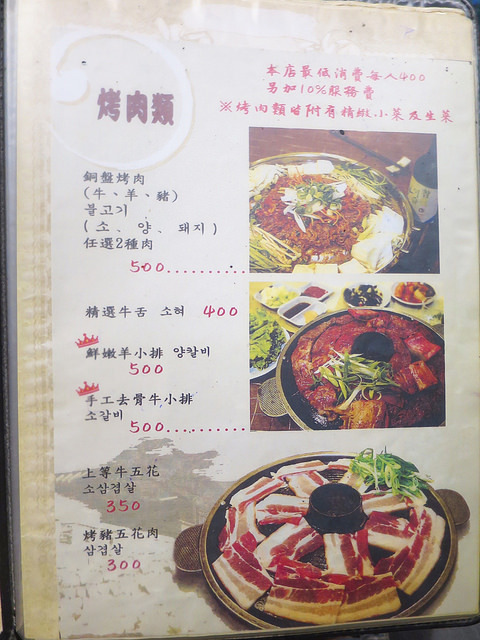 本店最低消費每人400
另加10%服務費
※烤肉類皆附有精緻小菜及生菜
烤肉類
銅盤烤肉
(牛、羊、豬)
불고기
(소、양、돼지)
任選2種肉
500..........
精選牛舌 소혀 400
鮮嫩羊小排 양칼비
500
手工去骨牛小排
소갈비
500..........
上等牛五花
소삼겹살
350
烤豬五花肉
삼겹살
300